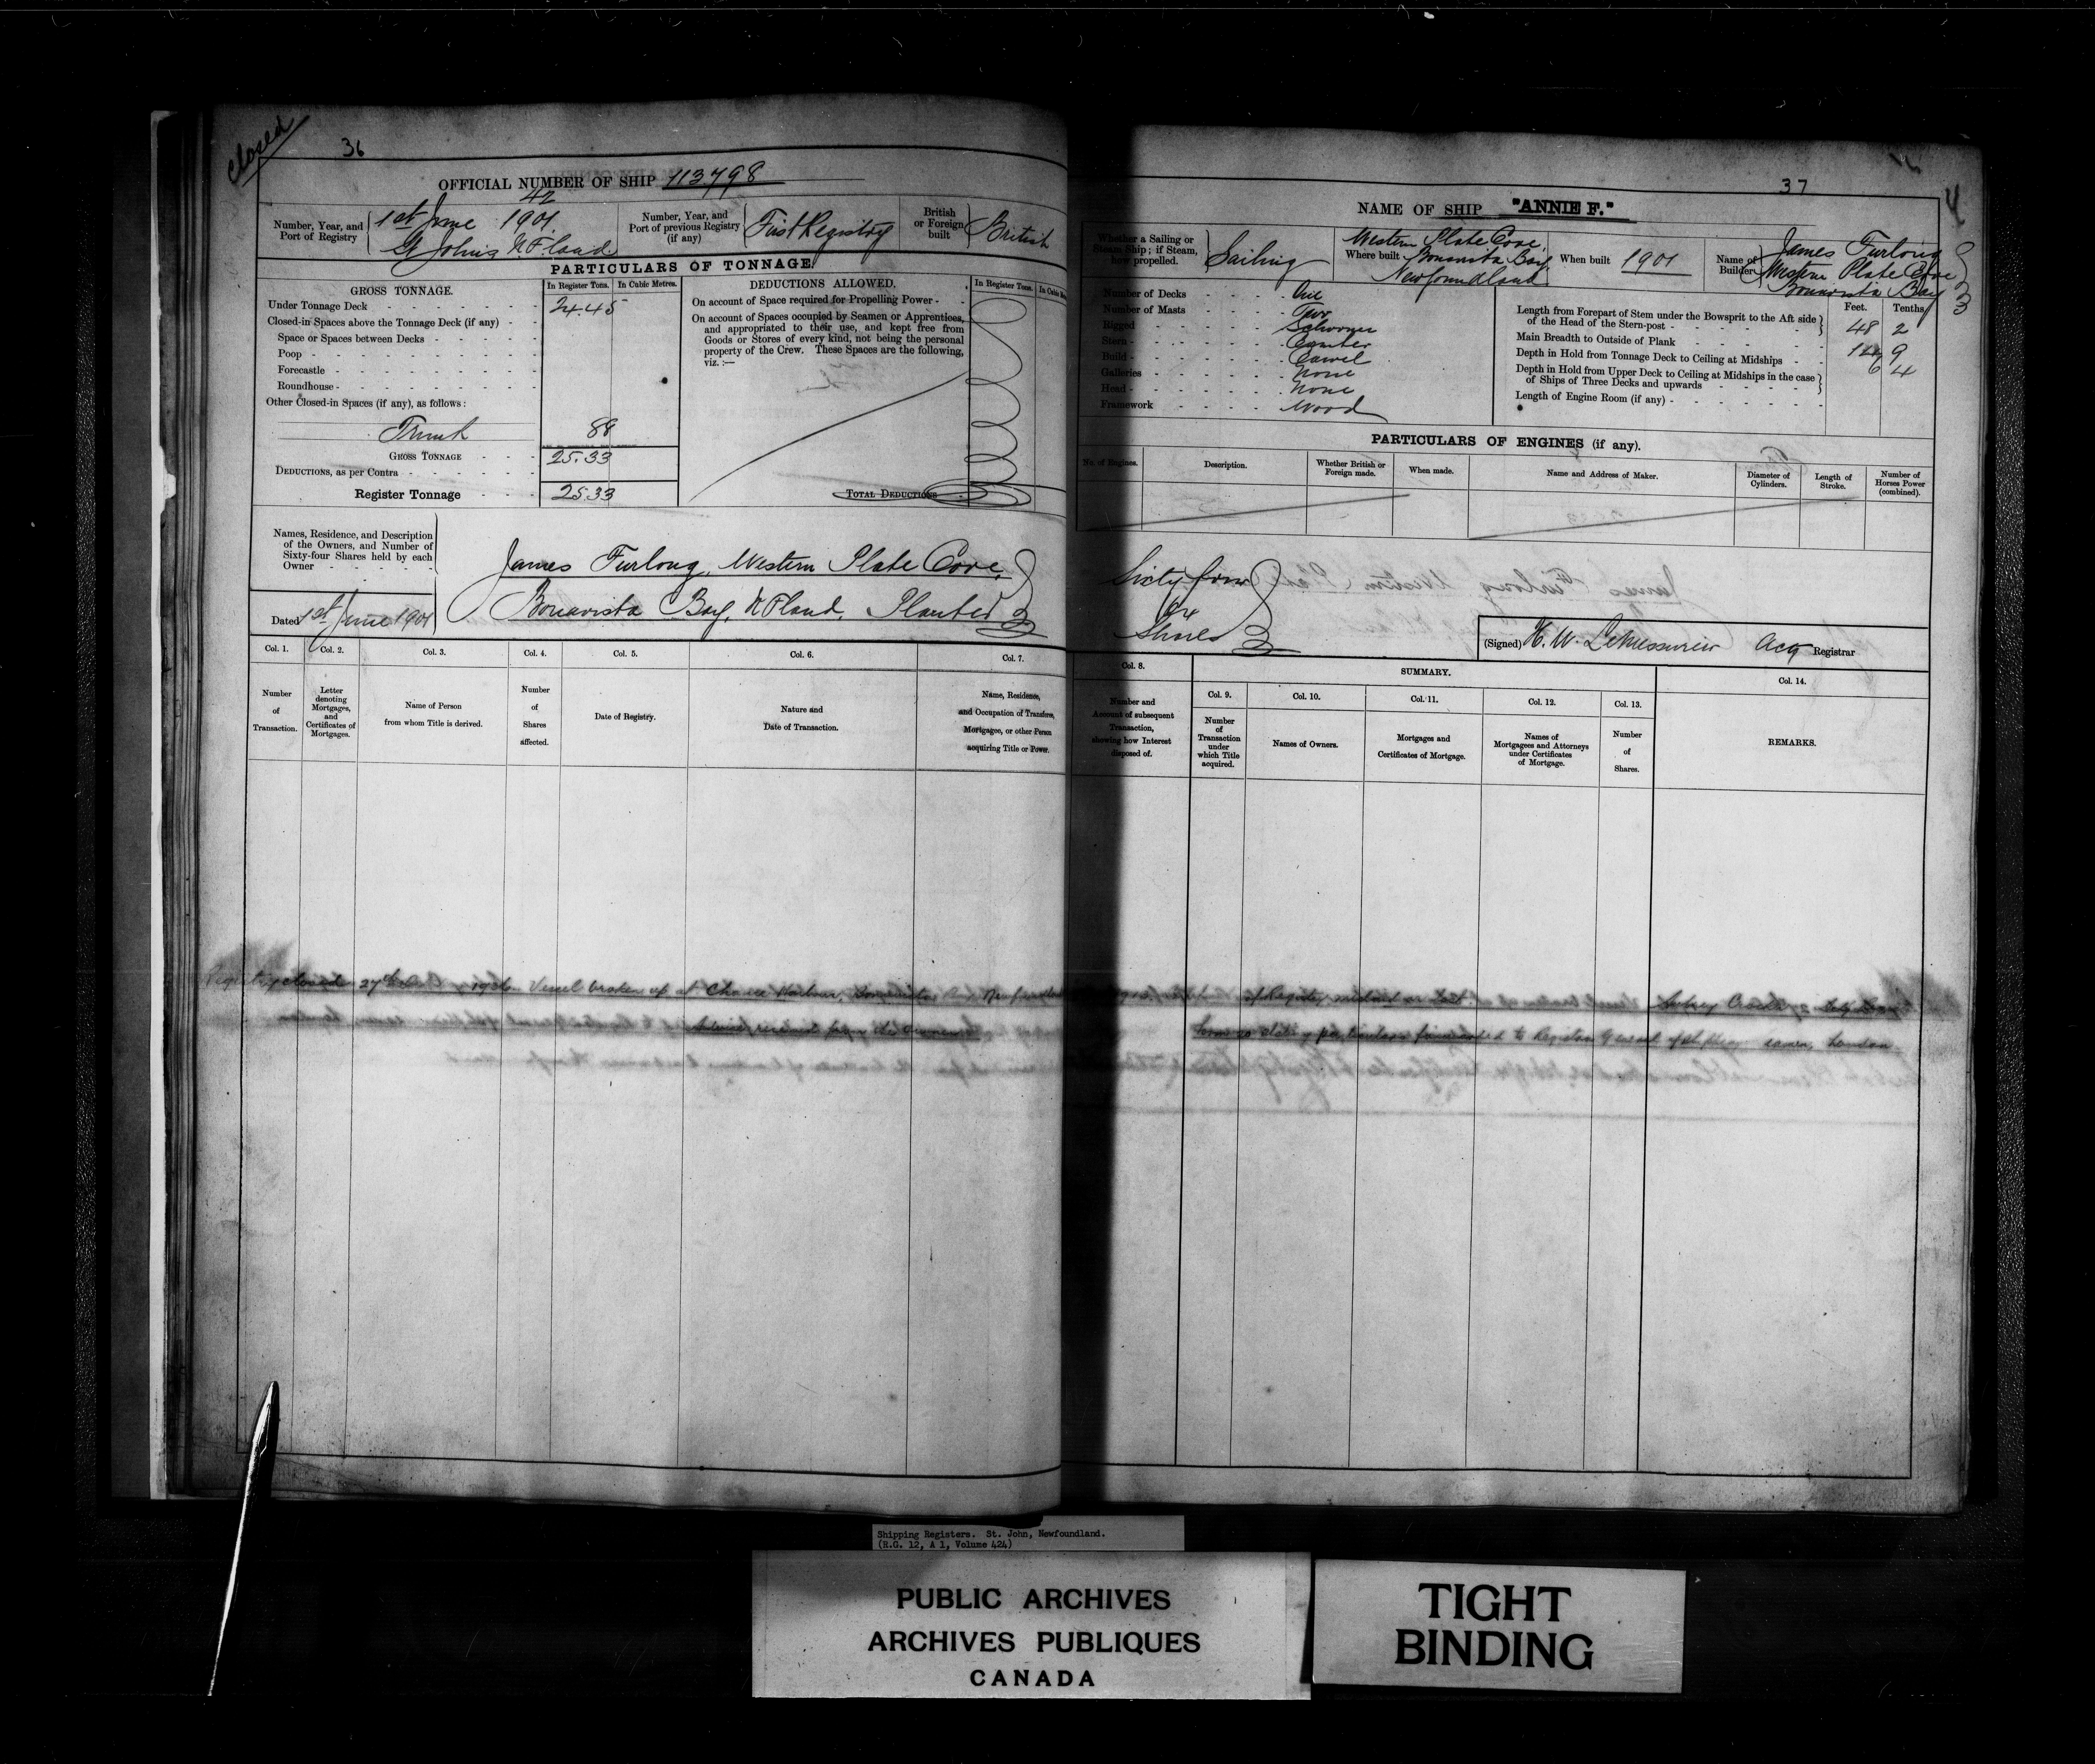 closed
36
OFFICIAL NUMBER OF SHIP 113798
42
Number, Year, and Port of Registry
1st June 1901
St Johns N.F.land
Number, Year, and Port of previous Registry (if any)
First Registry
British or Foreign built
British
PARTICULARS OF TONNAGE.
GROSS TONNAGE.
In Register Tons.
In Cubic Metres.
Under Tonnage Deck 24.45
Closed-in Spaces above the Tonnage Deck (if any)
Space or Spaces between Decks
Poop
Forecastle
Roundhouse
Other Closed-in Spaces (if any), as follows:
Trunk 88
GROSS TONNAGE 25.33
DEDUCTIONS, as per Contra
Register Tonnage 25.33
DEDUCTIONS ALLOWED.
In Register Tons.
On account of Space required for Propelling Power
On account of Spaces occupied by Seamen or Apprentices,
and appropriated to their use, and kept free from
Goods or Stores of every kind, not being the personal
property of the Crew. These Spaces are the following,
viz.:—
TOTAL DEDUCTIONS
Names, Residence, and Description
of the Owners, and Number of
Sixty-four Shares held by each
Owner
Dated 1st June 1901
James Furlong, Western Plate Cove,
Bonavista Bay, N.F.land, Planter
Col. 1.
Number of Transaction.
Col. 2.
Letter denoting Mortgages, and Certificates of Mortgages.
Col. 3.
Name of Person from whom Title is derived.
Col. 4.
Number of Shares affected.
Col. 5.
Date of Registry.
Col. 6.
Nature and Date of Transaction.
Col. 7.
Name, Residence, and Occupation of Transferee, Mortgagee, or other Person acquiring Title or Power.
Registry closed 27th
Vessel broken up at
Advice received from the owner
37
NAME OF SHIP "ANNIE F."
Whether a Sailing or Steam Ship; if Steam, how propelled.
Sailing
Where built
Western Plate Cove,
Bonavista Bay,
Newfoundland
When built 1901
Name of Builder
James Furlong
Western Plate Cove
Bonavista Bay
Number of Decks One
Number of Masts Two
Rigged Schooner
Stern Counter
Build Carvel
Galleries None
Head None
Framework Wood
Feet. Tenths.
Length from Forepart of Stem under the Bowsprit to the Aft side
of the Head of the Stern-post 48 2
Main Breadth to Outside of Plank 9
Depth in Hold from Tonnage Deck to Ceiling at Midships 6 4
Depth in Hold from Upper Deck to Ceiling at Midships in the case
of Ships of Three Decks and upwards
Length of Engine Room (if any)
PARTICULARS OF ENGINES (if any).
No. of Engines.
Description.
Whether British or Foreign made.
When made.
Name and Address of Maker.
Diameter of Cylinders.
Length of Stroke.
Number of Horses Power (combined).
Sixty four
64
Shares
(Signed) H. W. LeMessurier Actg Registrar
Col. 8.
Number and Account of subsequent Transaction, showing how Interest disposed of.
SUMMARY.
Col. 9.
Number of Transaction under which Title acquired.
Col. 10.
Names of Owners.
Col. 11.
Mortgages and Certificates of Mortgage.
Col. 12.
Names of Mortgagees and Attorneys under Certificates of Mortgage.
Col. 13.
Number of Shares.
Col. 14.
REMARKS.
forwarded to Registrar General of Shipping London.
Shipping Registers. St. John, Newfoundland.
(R.G. 12, A 1, Volume 424)
PUBLIC ARCHIVES
ARCHIVES PUBLIQUES
CANADA
TIGHT
BINDING